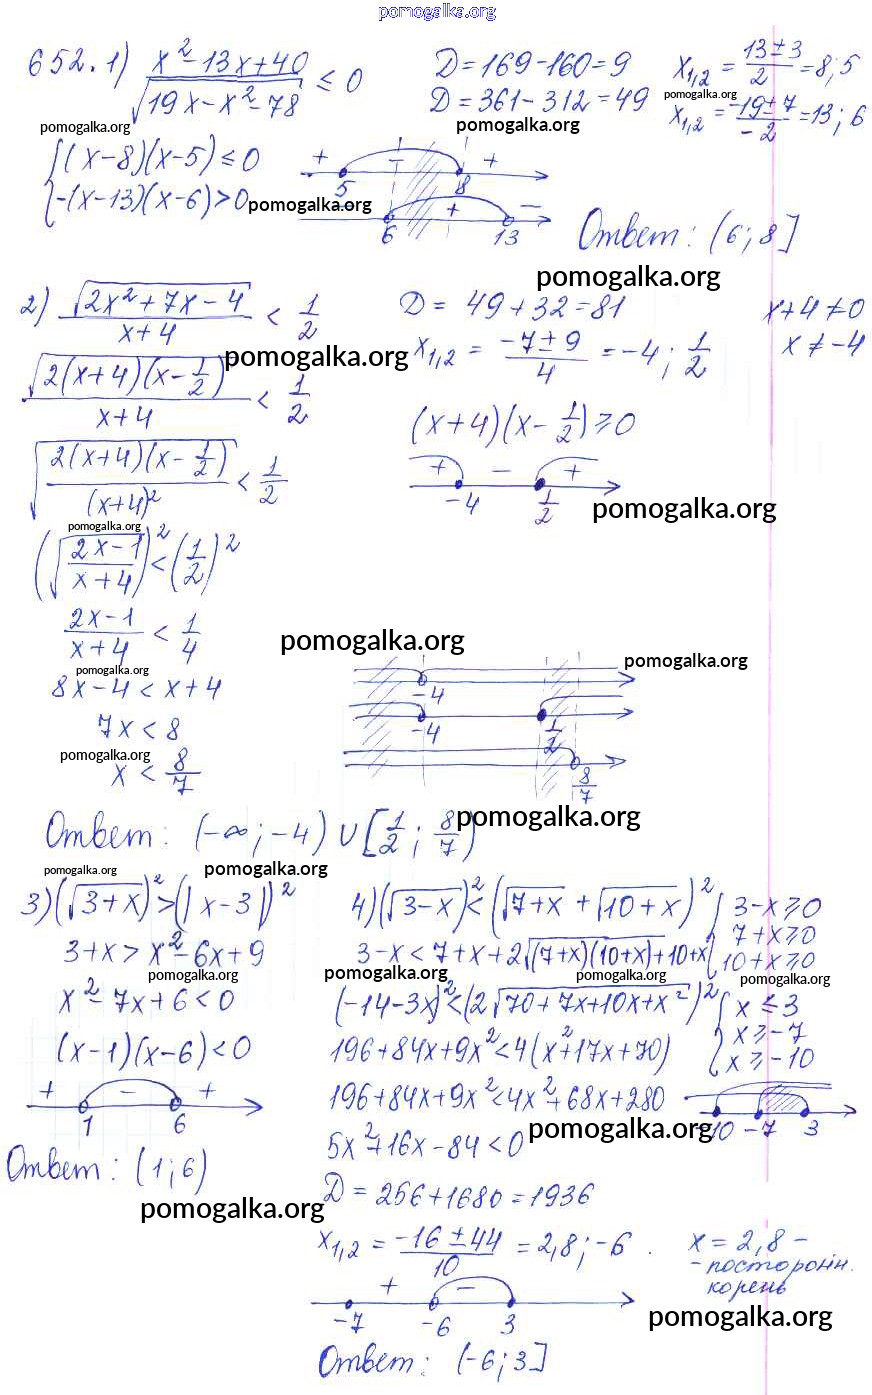 pomogalka.org
652. 1) (x² - 13x + 40)/√(19x - x² - 78) ≤ 0
D = 169 - 160 = 9
x₁,₂ = (13 ± 3)/2 = 8; 5
D = 361 - 312 = 49
pomogalka.org
x₁,₂ = (-19 ± 7)/-2 = 13; 6
pomogalka.org
pomogalka.org
{(x - 8)(x - 5) ≤ 0
{-(x - 13)(x - 6) > 0
+ - +
5 8
pomogalka.org
+ -
6 13
Ответ: (6; 8]
pomogalka.org
2) √(2x² + 7x - 4)/(x + 4) < 1/2
D = 49 + 32 = 81
x + 4 ≠ 0
pomogalka.org
x₁,₂ = (-7 ± 9)/4 = -4; 1/2
x ≠ -4
√(2(x + 4)(x - 1/2))/(x + 4) < 1/2
(x + 4)(x - 1/2) ≥ 0
√(2(x + 4)(x - 1/2)/(x + 4)²) < 1/2
+ - +
-4 1/2
pomogalka.org
pomogalka.org
(√((2x - 1)/(x + 4)))² < (1/2)²
(2x - 1)/(x + 4) < 1/4
pomogalka.org
pomogalka.org
pomogalka.org
8x - 4 < x + 4
-4
7x < 8
-4 1/2
pomogalka.org
x < 8/7
8/7
Ответ: (-∞; -4) ∪ [1/2; 8/7)
pomogalka.org
pomogalka.org
pomogalka.org
3) (√(3 + x))² > (|x - 3|)²
3 + x > x² - 6x + 9
pomogalka.org
x² - 7x + 6 < 0
(x - 1)(x - 6) < 0
+ - +
1 6
Ответ: (1; 6)
pomogalka.org
4) (√(3 - x))² < (√(7 + x) + √(10 + x))²
{3 - x ≥ 0
{7 + x ≥ 0
{10 + x ≥ 0
3 - x < 7 + x + 2√((7 + x)(10 + x)) + 10 + x
pomogalka.org
pomogalka.org
pomogalka.org
(-14 - 3x)² < (2√(70 + 7x + 10x + x²))²
{x ≤ 3
{x ≥ -7
{x ≥ -10
196 + 84x + 9x² < 4(x² + 17x + 70)
196 + 84x + 9x² < 4x² + 68x + 280
-10 -7 3
pomogalka.org
5x² + 16x - 84 < 0
D = 256 + 1680 = 1936
x₁,₂ = (-16 ± 44)/10 = 2,8; -6.
x = 2,8 -
- посторонн.
корень
+ -
-7 -6 3
pomogalka.org
Ответ: (-6; 3]